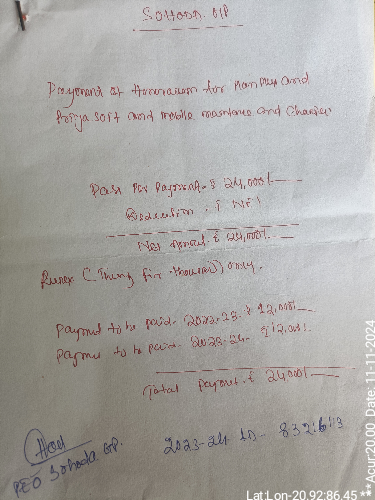 Sohoda. GP
Payment of Honorarium for Man and
Priya soft and mobile and
Pass For Payment. ₹ 24,000/-
Deduction. ₹ Nil
Net Amount. ₹ 24,000/-
only.
Payment to be paid- 2022-23. ₹ 12,000/-
Payment to be paid- 2023-24- ₹ 12,000/-
Total Payment. ₹ 24000/-
2023-24 ID- 8321613
PEO Sohoda GP.
Lat Lon-20.92:86.45 *** Acur:20.00 Date, 11-11-2024